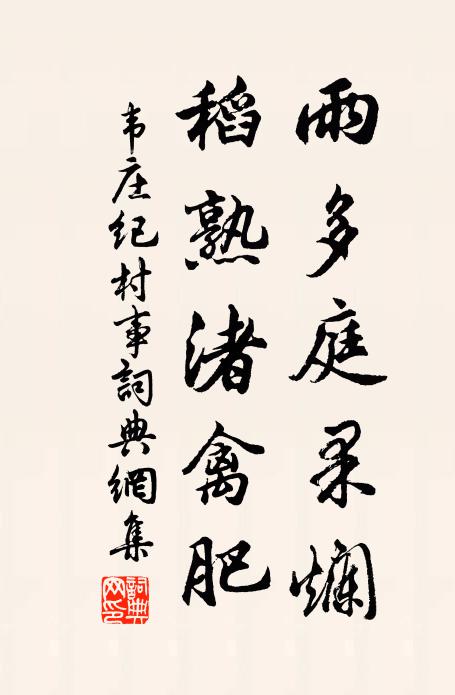 雨多庭果爛
稻熟渚禽肥
韦庄纪村事詞典網集
詞典
网印